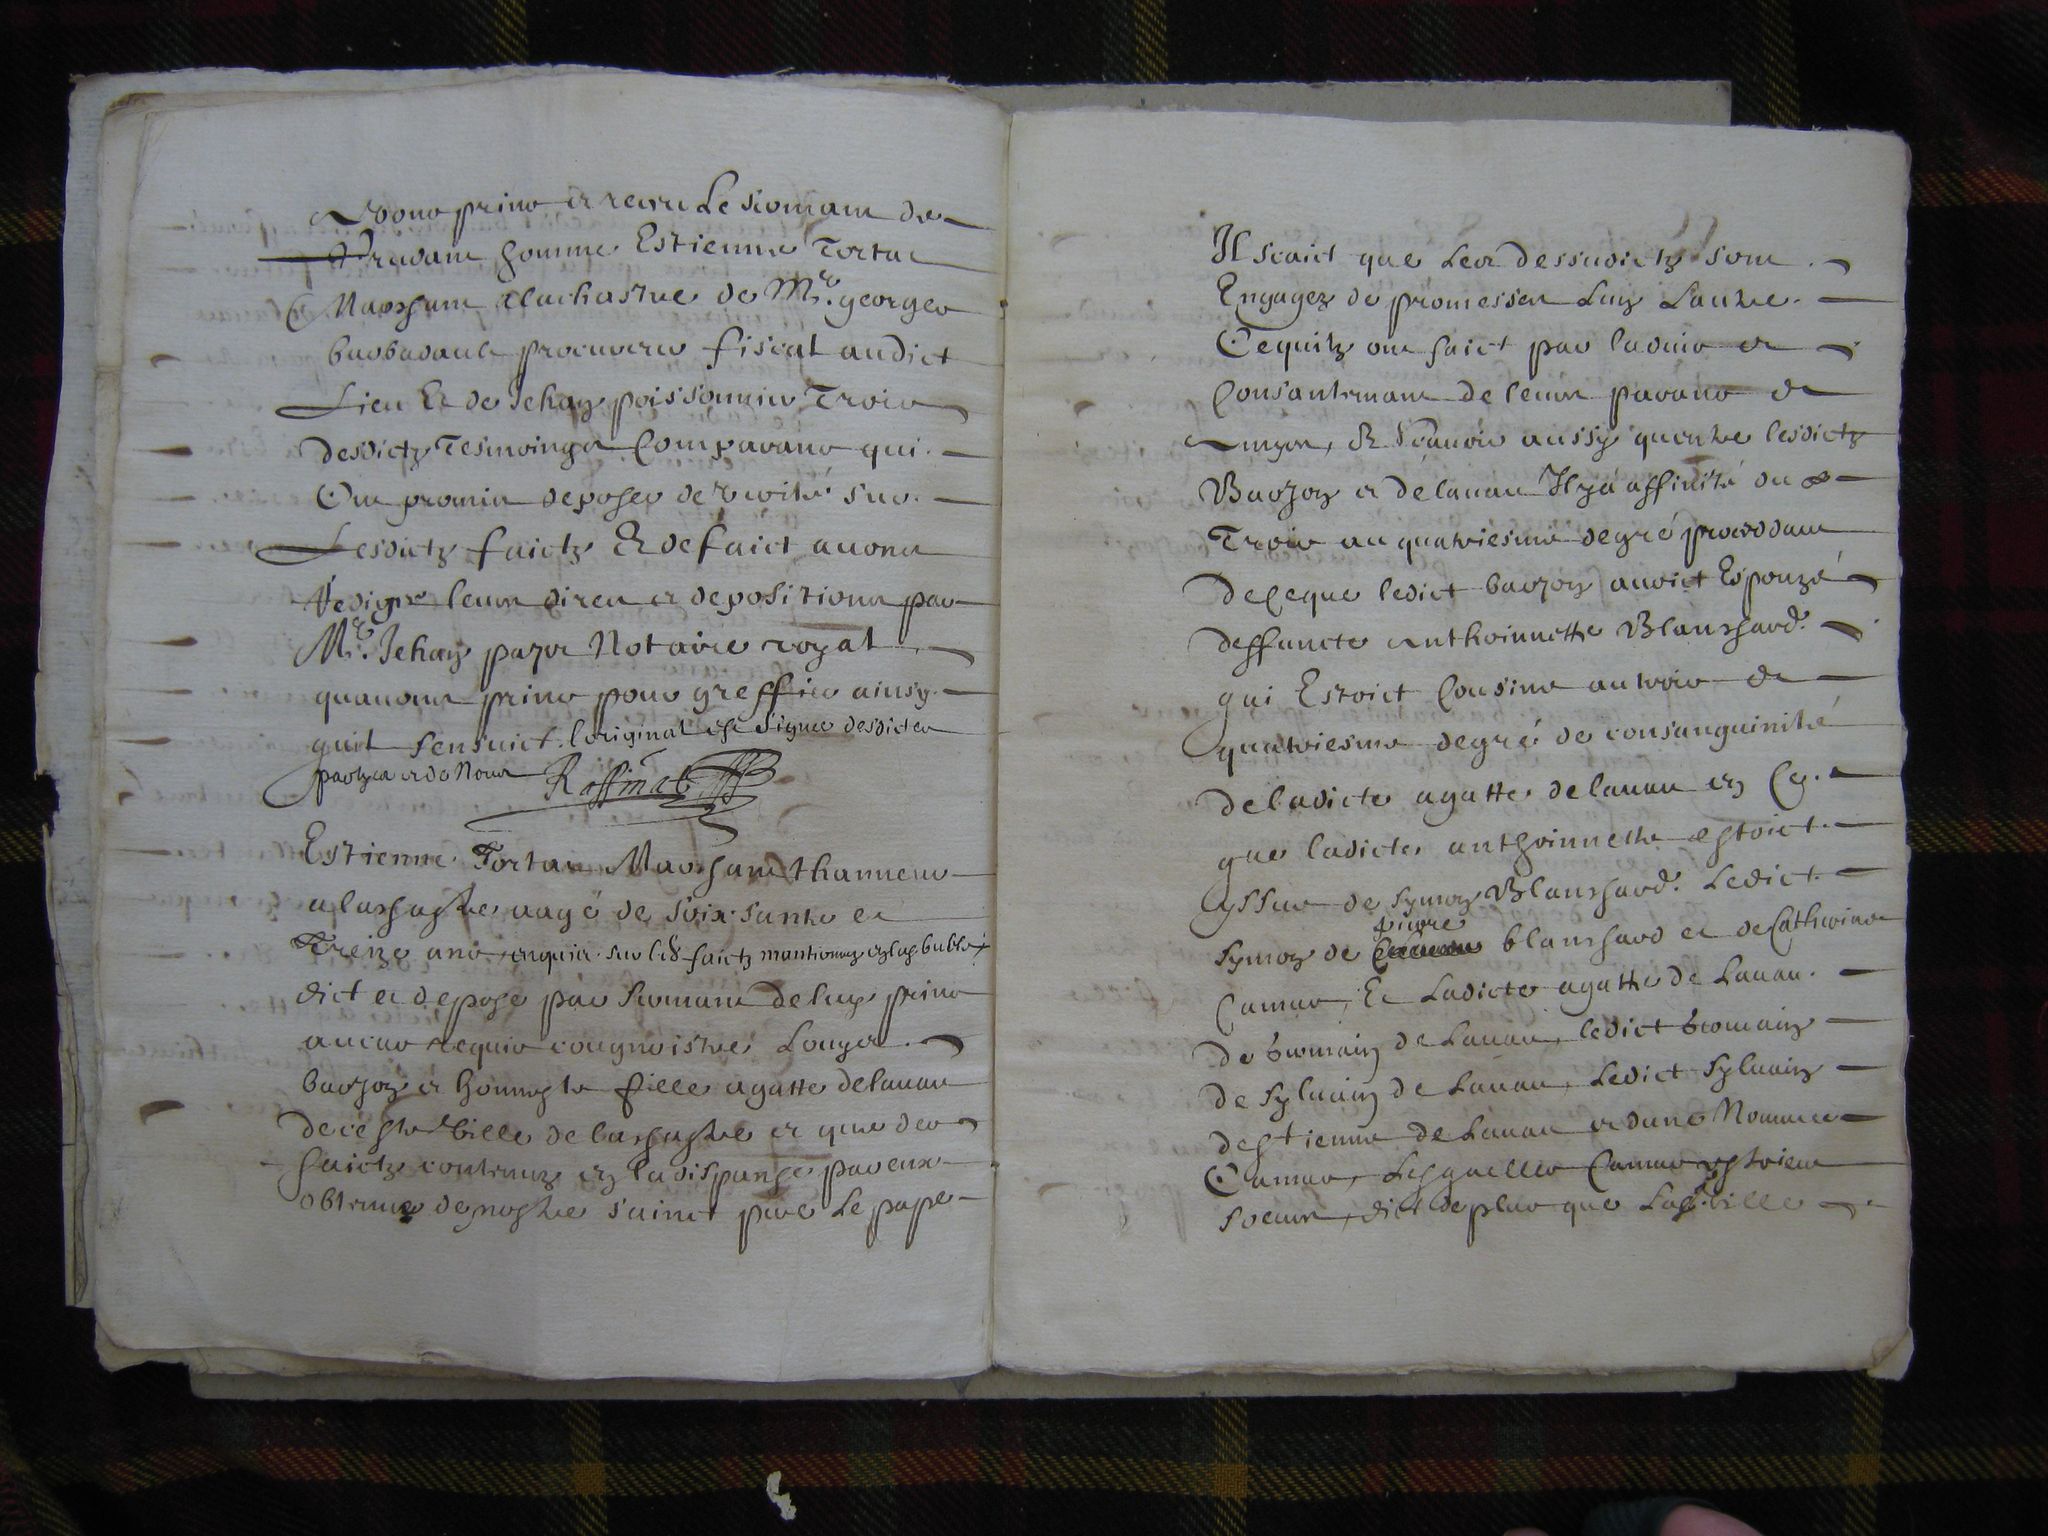 avons prins et receu Le sermant de
Prudant homme Estienne Tortat
Marchant a lachastre de Me. georges
barbadault procureur fiscal audict
Lieu Et de Jehan poissonnier Trois
desdictz Tesmoings Comparans qui
Ont promis deposer de verité sur
Lesdictz faictz Et de faict avons
Redigé leurs dires et depositions par
Me. Jehan pajot Notaire royal
quavons prins pour greffier ainsy
quil sensuict loriginal est signé desdictes
partyes et de Nous
Estienne Tortat Marchant thanneur
a lachastre aagé de soixsante et
Treize ans enquis sur les faictz mantionnez
dict et depose par sermant de luy prins
au cas requis cougnoistre Louys
barjon et honneste fille agatte delavau
de ceste ville de lachastre et que des
faictz contenuz en la dispanse par eux
obtenue de nostre sainct pere Le pape
Il scaict que Les dessusdictz sont
Engagez de promesses Lun Lautre
Ce quilz ont faict par ladvis et
Consantemant de leurs parans et
amys, Et scavoir aussy quentre lesdictz
Barjon et delavau Il y a affinité du
Trois au quatriesme degré proceddant
de Ce que ledict barjon avoict Espouzé
deffuncte anthoinnette Blanchard
qui Estoict Cousine au trois et
quatriesme degré de consanguinité
de ladicte agatte delavau en Ce
que ladicte anthoinnette estoict
yssue de symon Blanchard. Ledict
symon de pierre blanchard et de Catherine
Camus, Et Ladicte agatte de Lavau
de Germain de Lavau, ledict Germain
de sylvain de Lavau, Ledict sylvain
destienne de Lavau et dune Nommee
Camus, Lesquelles Camus estoient
soeurs, dict de plus que Lad. ville